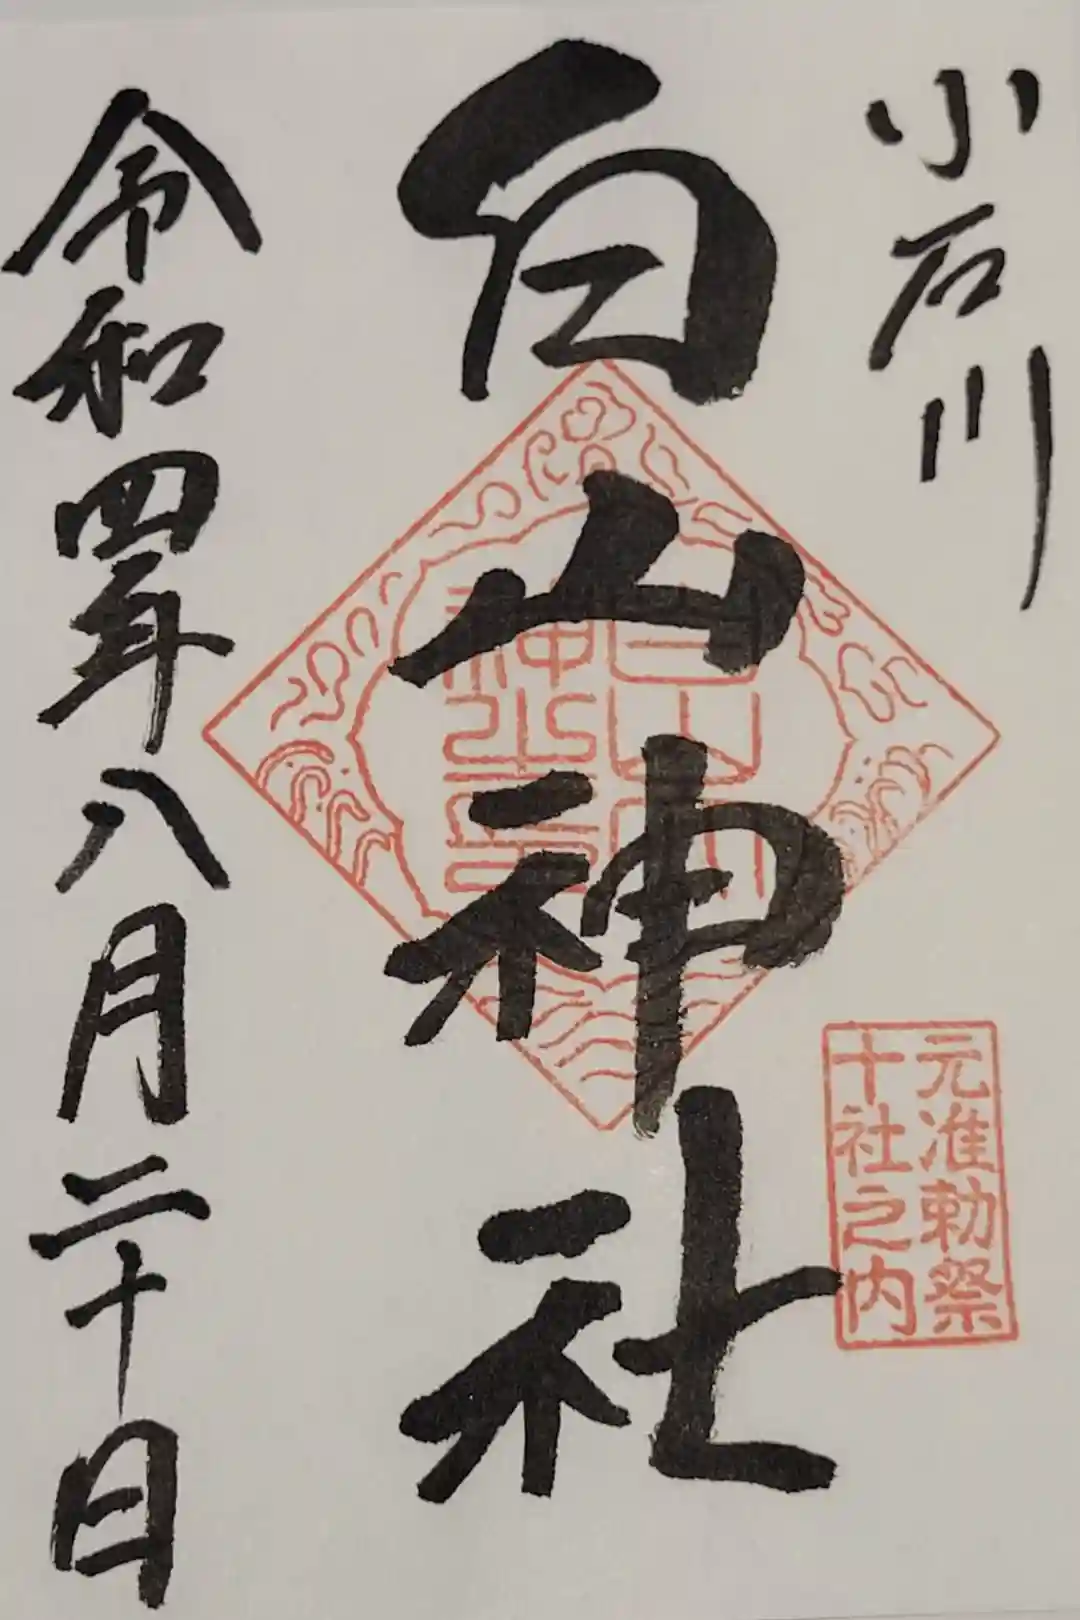 小石川
白山神社
元准勅祭
十社之内
令和四年八月二十日